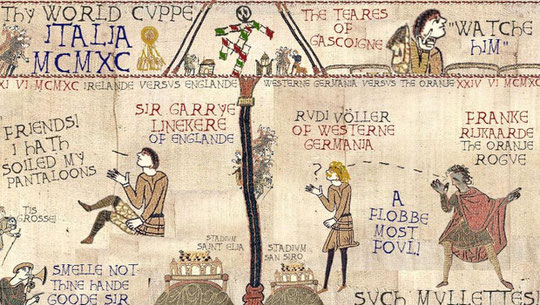 THY WORLD CVPPE
ITALIA
MCMXC
THE TEARES
OF
GASCOIGNE
"WATCHE
HIM"
XI VI MCMXC IRELANDE VERSVS ENGLANDE
WESTERNE GERMANIA VERSVS THE ORANJE XXIV VI MCMXC
SIR GARRYE
LINEKERE
OF ENGLANDE
FRIENDS!
I HATH
SOILED MY
PANTALOONS
'TIS
GROSSE!
SMELLE NOT
THINE HANDE
GOODE SIR
STADIVM
SAINT ELIA
RVDI VÖLLER
OF WESTERNE
GERMANIA
?
FRANKE
RIJKAARDE
THE ORANJE
ROGVE
A
FLOBBE
MOST
FOVL!
STADIVM
SAN SIRO
SVCH MVLLETTES!